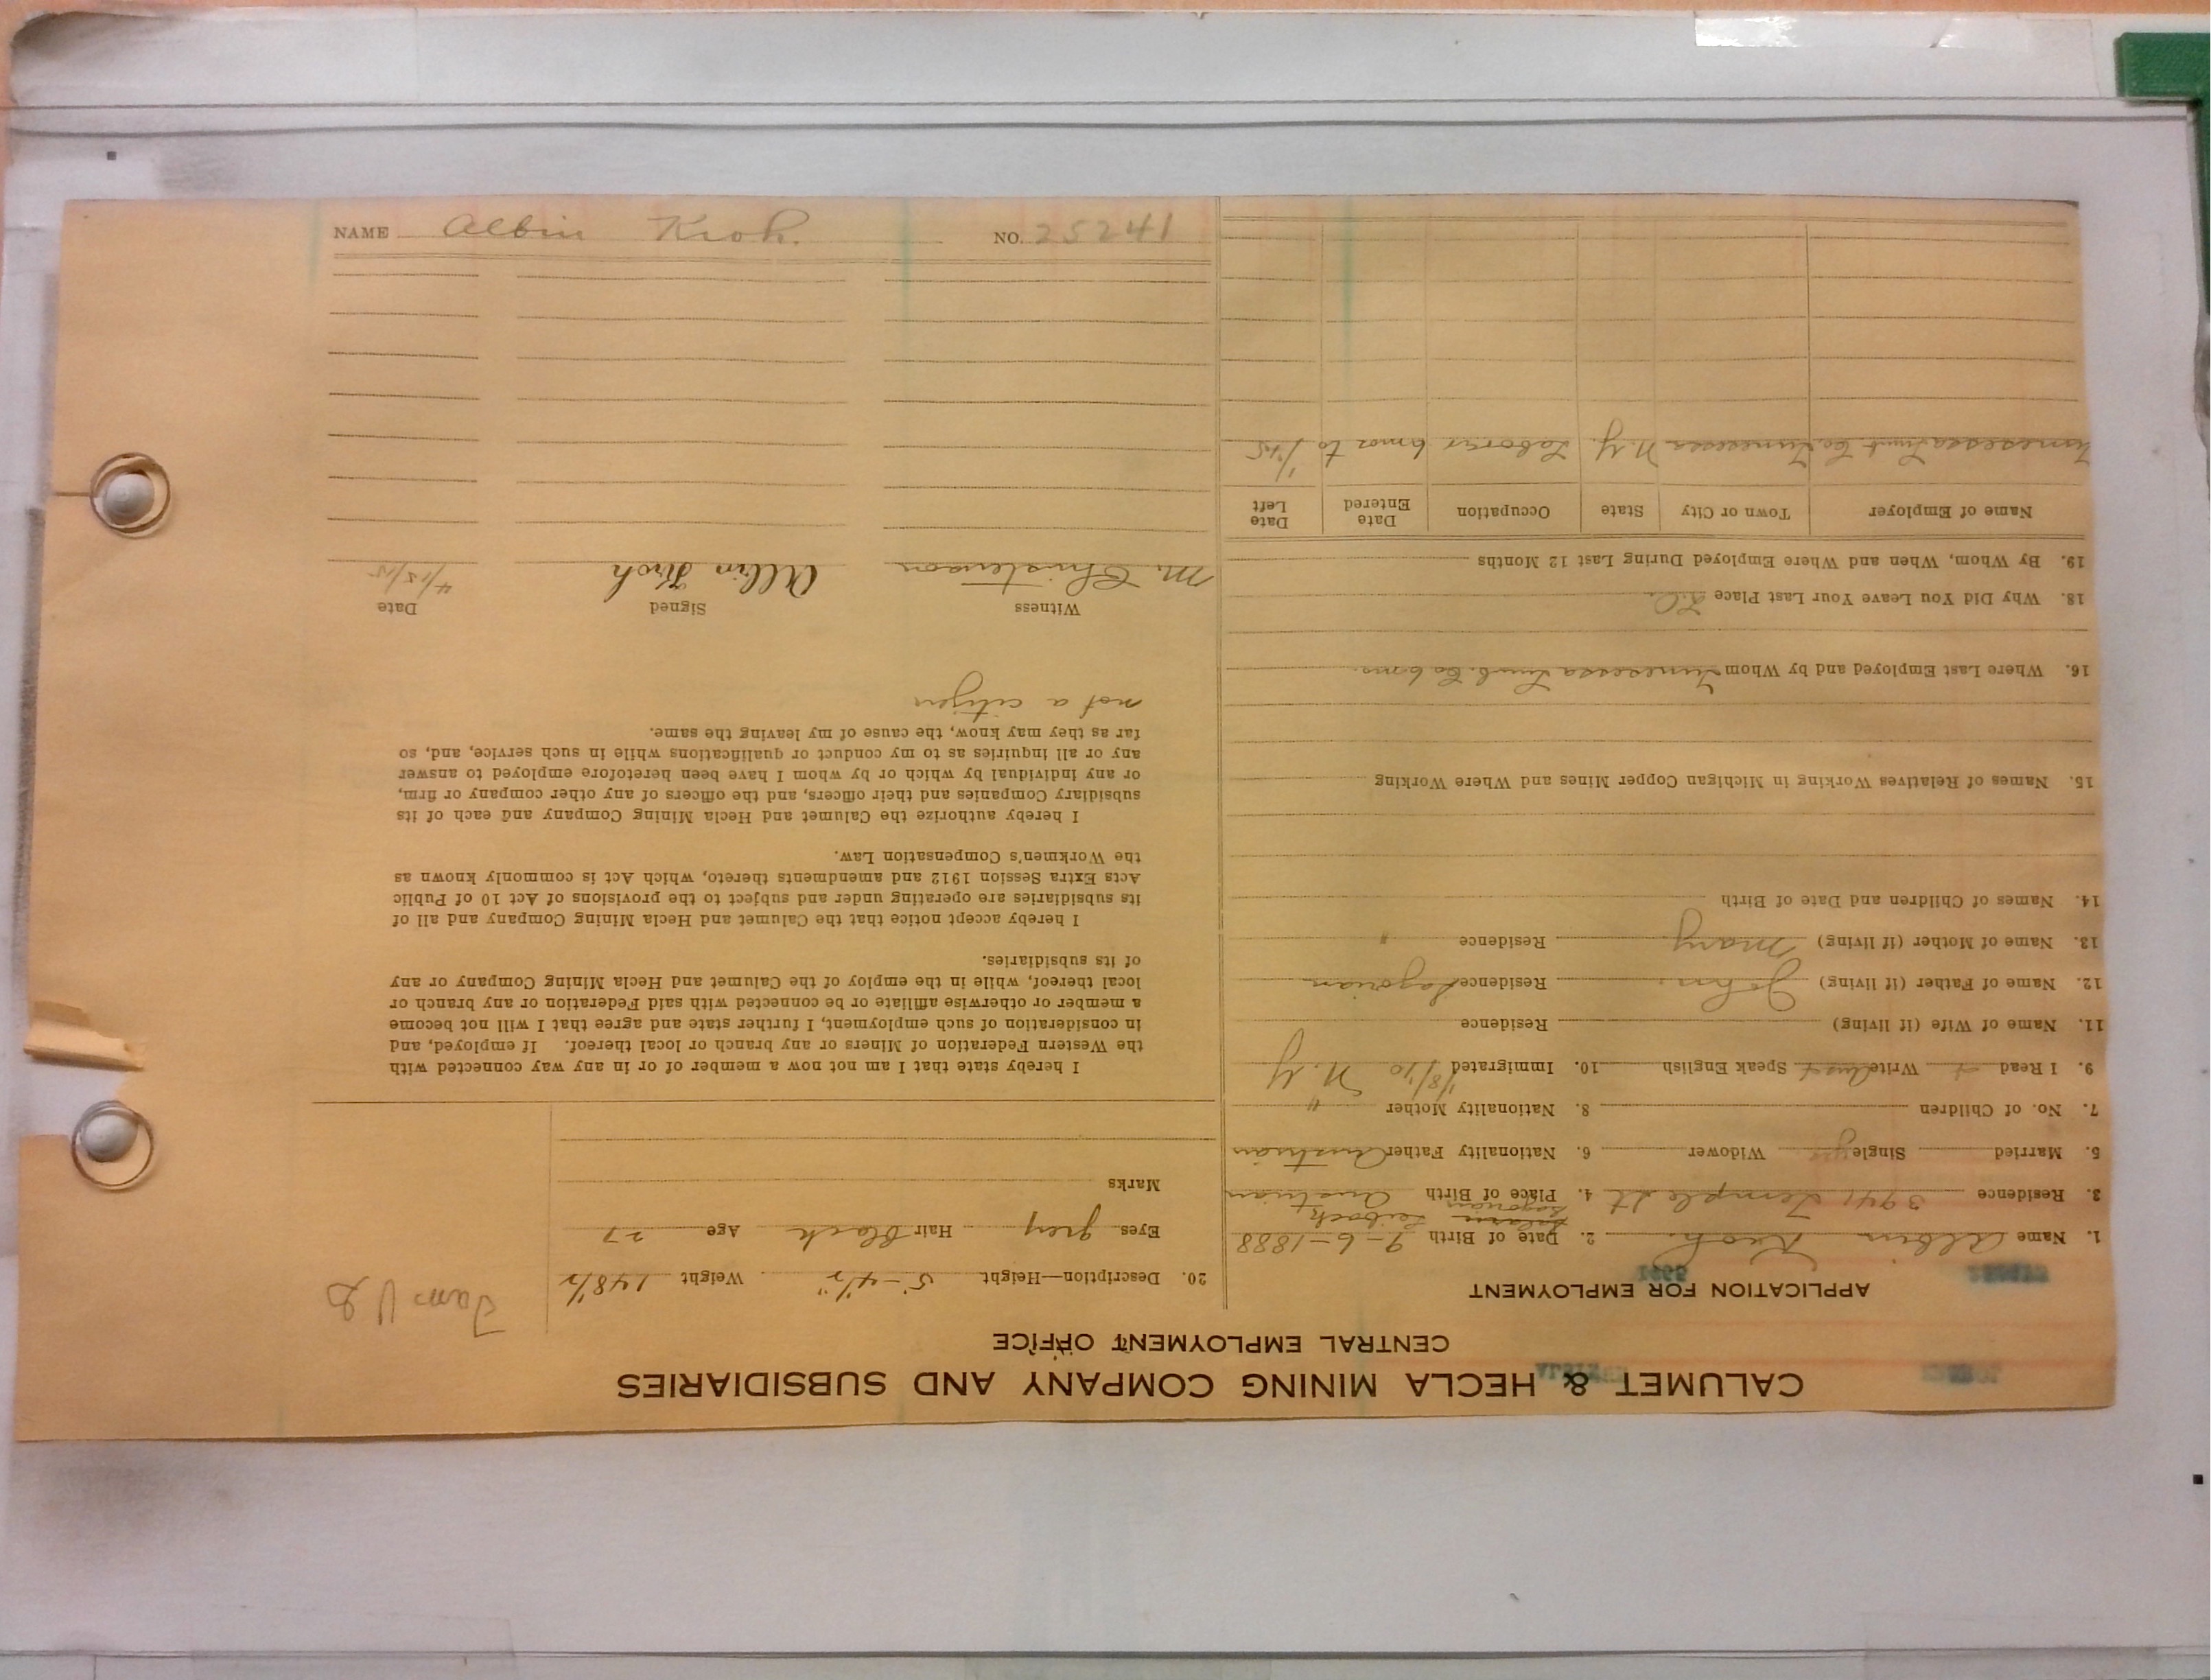 CALUMET & HECLA MINING COMPANY AND SUBSIDIARIES
CENTRAL EMPLOYMENT OFFICE
APPLICATION FOR EMPLOYMENT
1. Name Albin Kroh. 2. Date of Birth 9-6-1888
3. Residence 3941 Temple St 4. Place of Birth Austrian
5. Married Single yes Widower 6. Nationality Father Austrian
7. No. of Children 8. Nationality Mother "
9. I Read Write Speak English 10. Immigrated 1/8/10 N.Y
11. Name of Wife (if living) Residence
12. Name of Father (if living) John Residence
13. Name of Mother (if living) Mary Residence "
14. Names of Children and Date of Birth
15. Names of Relatives Working in Michigan Copper Mines and Where Working
16. Where Last Employed and by Whom Co 6 ms.
18. Why Did You Leave Your Last Place
19. By Whom, When and Where Employed During Last 12 Months
Name of Employer Town or City State Occupation Date Entered Date Left
Co. N.Y. Laborer 6 mos to 1/15
20. Description—Height 5-4½" Weight 148½
Eyes grey Hair Black Age 27
Marks
I hereby state that I am not now a member of or in any way connected with
the Western Federation of Miners or any branch or local thereof. If employed, and
in consideration of such employment, I further state and agree that I will not become
a member or otherwise affiliate or be connected with said Federation or any branch or
local thereof, while in the employ of the Calumet and Hecla Mining Company or any
of its subsidiaries.
I hereby accept notice that the Calumet and Hecla Mining Company and all of
its subsidiaries are operating under and subject to the provisions of Act 10 of Public
Acts Extra Session 1912 and amendments thereto, which Act is commonly known as
the Workmen's Compensation Law.
I hereby authorize the Calumet and Hecla Mining Company and each of its
subsidiary Companies and their officers, and the officers of any other company or firm,
or any individual by which or by whom I have been heretofore employed to answer
any or all inquiries as to my conduct or qualifications while in such service, and, so
far as they may know, the cause of my leaving the same.
not a citizen
Witness Signed Date
M. Christenson Albin Kroh 4/15/15
NAME Albin Kroh. NO. 25241